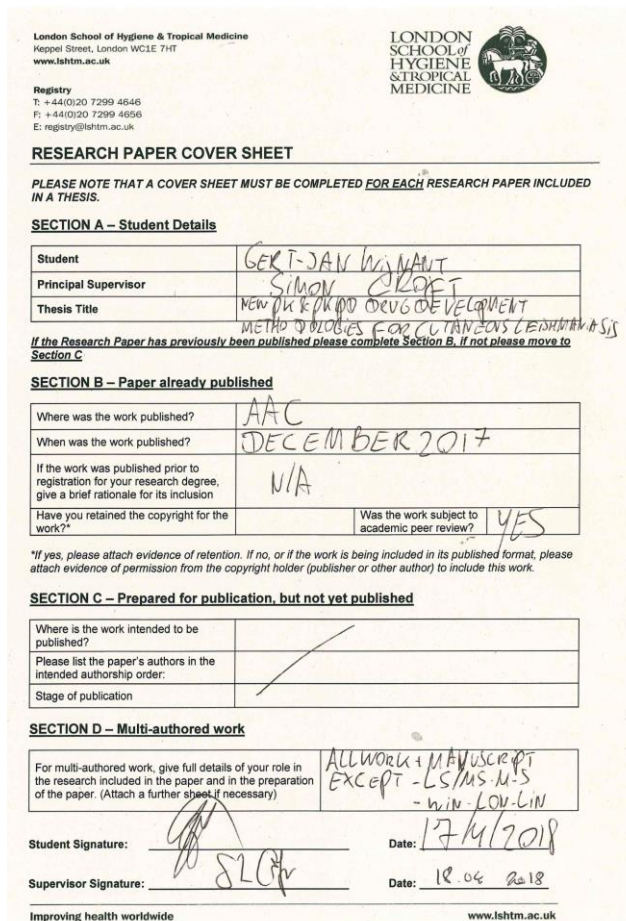 London School of Hygiene & Tropical Medicine
Keppel Street, London WC1E 7HT
www.lshtm.ac.uk
LONDON
SCHOOL of
HYGIENE
&TROPICAL
MEDICINE
Registry
T: +44(0)20 7299 4646
F: +44(0)20 7299 4656
E: registry@lshtm.ac.uk
RESEARCH PAPER COVER SHEET
PLEASE NOTE THAT A COVER SHEET MUST BE COMPLETED FOR EACH RESEARCH PAPER INCLUDED
IN A THESIS.
SECTION A – Student Details
Student GERT-JAN WIJNANT
Principal Supervisor SIMON CROFT
Thesis Title NEW PK & PKPD DRUG DEVELOPMENT
METHODOLOGIES FOR CUTANEOUS LEISHMANIASIS
If the Research Paper has previously been published please complete Section B, if not please move to
Section C
SECTION B – Paper already published
Where was the work published? AAC
When was the work published? DECEMBER 2017
If the work was published prior to
registration for your research degree,
give a brief rationale for its inclusion N/A
Have you retained the copyright for the
work?*
Was the work subject to
academic peer review? YES
*If yes, please attach evidence of retention. If no, or if the work is being included in its published format, please
attach evidence of permission from the copyright holder (publisher or other author) to include this work.
SECTION C – Prepared for publication, but not yet published
Where is the work intended to be
published?
Please list the paper's authors in the
intended authorship order:
Stage of publication
SECTION D – Multi-authored work
For multi-authored work, give full details of your role in
the research included in the paper and in the preparation
of the paper. (Attach a further sheet if necessary)
ALL WORK + MANUSCRIPT
EXCEPT - LS/MS-M-S
- WIN-LON-LIN
Student Signature: Date: 17/4/2018
Supervisor Signature: Date: 18.04 2018
Improving health worldwide www.lshtm.ac.uk